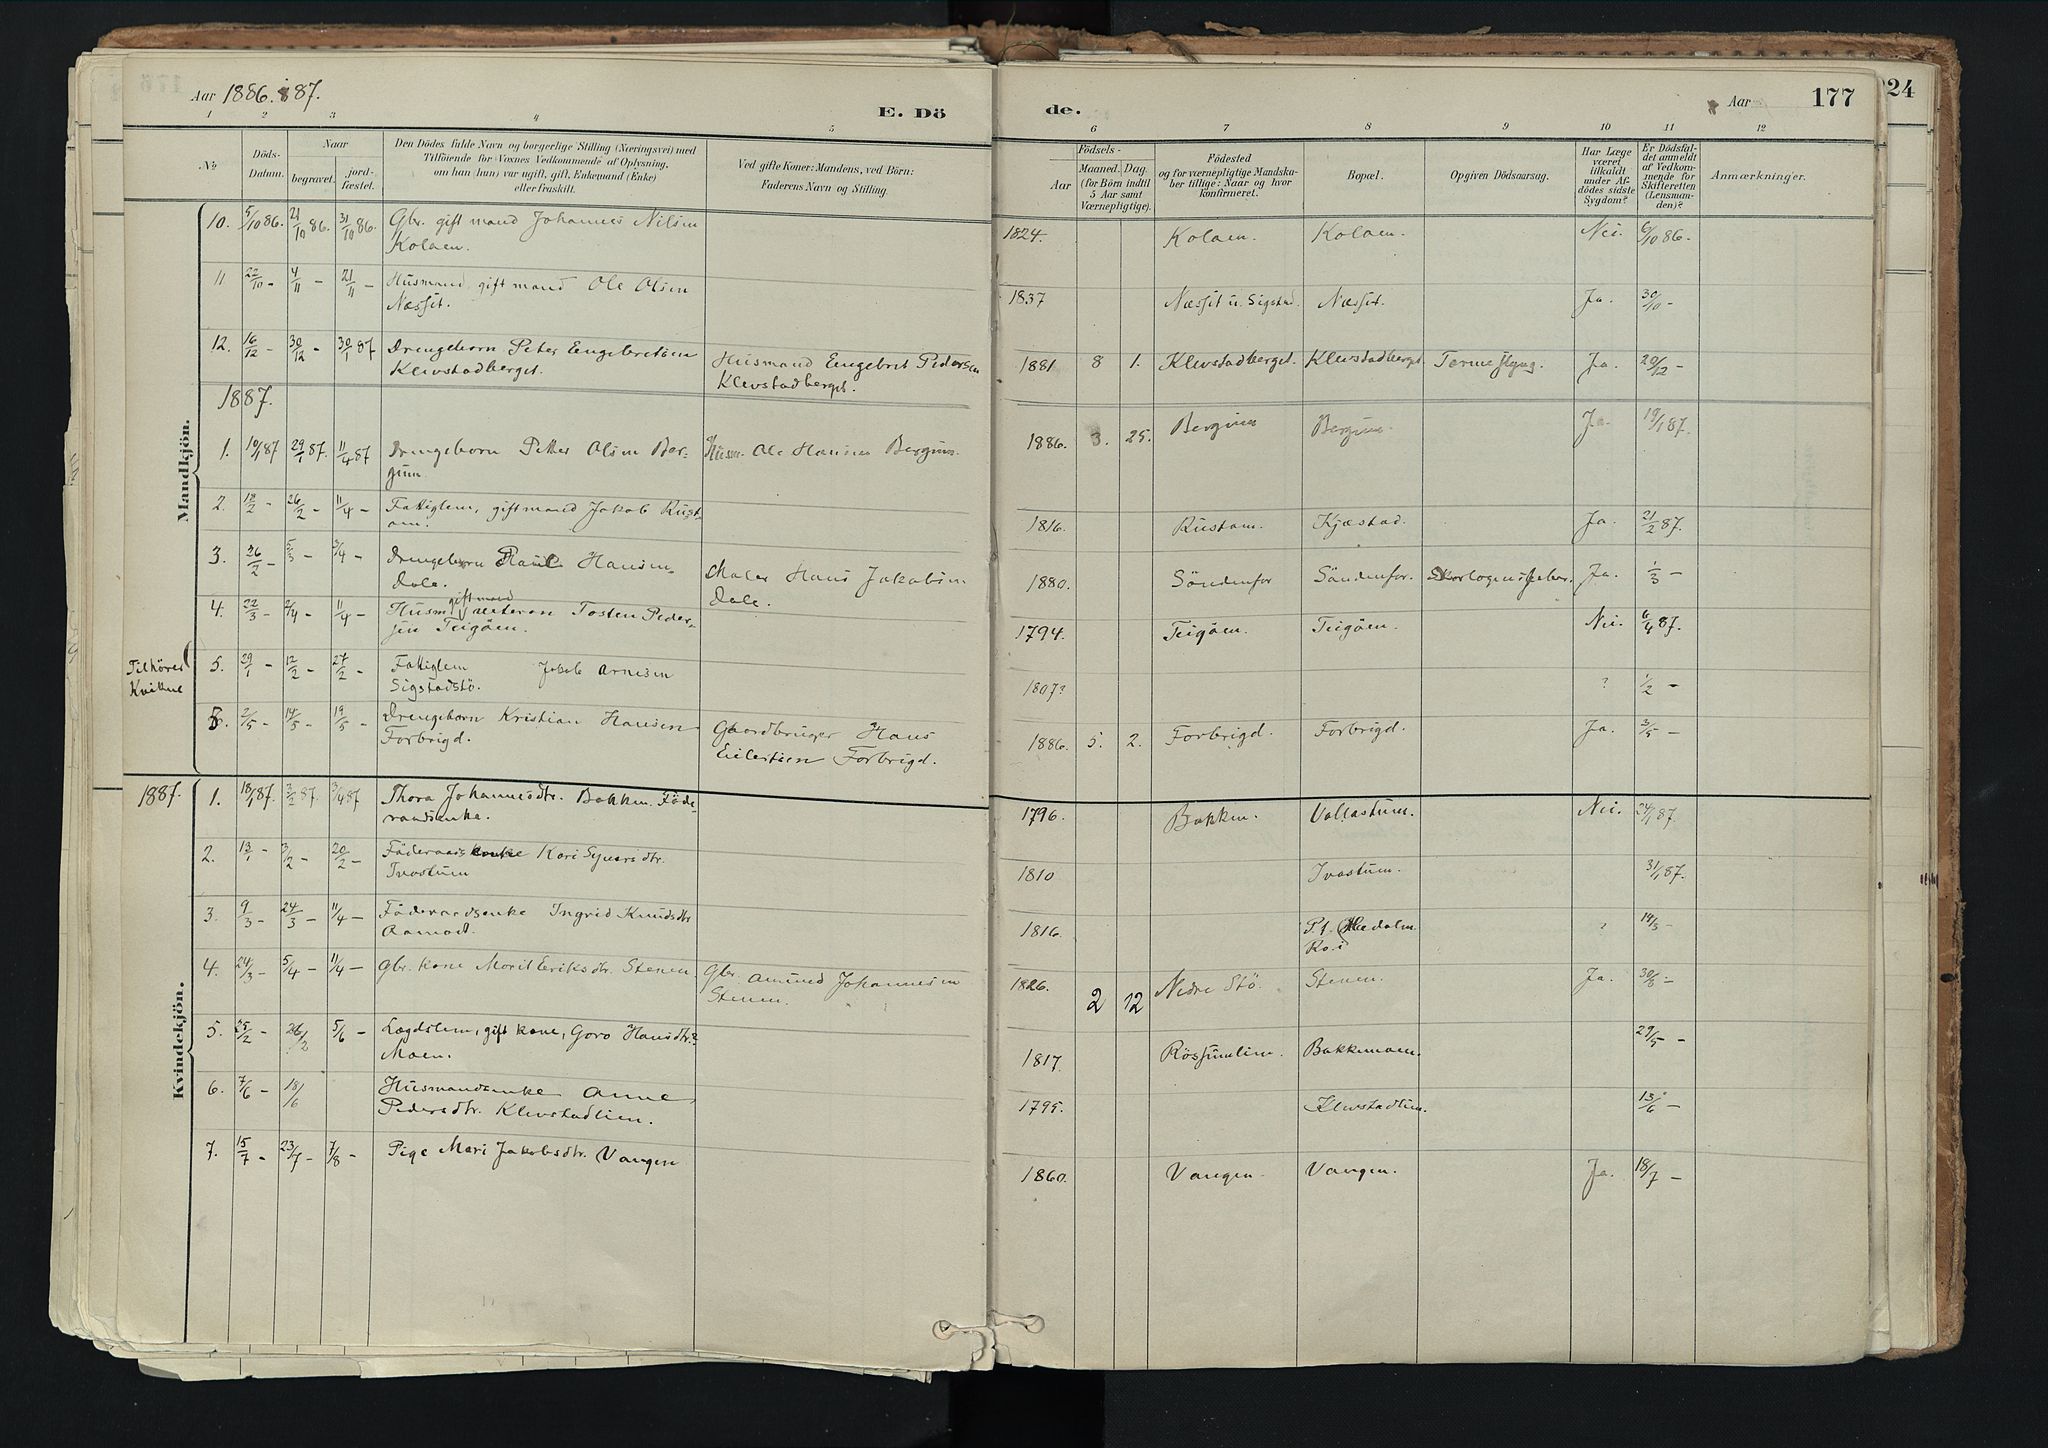 Aar 1886. 87.
E. Dö
de.
Aar
177
24
1 2 3 4 5 6 7 8 9 10 11 12
No. Döds-Datum. Naar begravet. jord-fæstet.
Den Dödes fulde Navn og borgerlige Stilling (Næringsvei) med
Tilföiende for Voxnes Vedkommende af Oplysning,
om han (hun) var ugift, gift, Enkemand (Enke)
eller fraskilt.
Ved gifte Koner: Mandens, ved Börn:
Faderens Navn og Stilling.
Födsels-
Aar Maaned. Dag.
(for Börn indtil
5 Aar samt
Værnepligtige).
Födested
og for værnepligtige Mandska-
ber tillige: Naar og hvor
konfirmeret.
Bopæl.
Opgiven Dödsaarsag.
Har Læge
været
tilkaldt
under Af-
dödes sidste
Sygdom?
Er Dödsfal-
det anmeldt
af Vedkom-
mende for
Skifteretten
(Lensman-
den)?
Anmærkninger.
Mandkjön.
10. 5/10 86. 21/10 86. 31/10 86. Gbr. gift mand Johannes Nilsen
Kolaen. 1824. Kolaen. Kolaen. Nei. 6/10 86.
11 22/10 - 4/11 - 21/11 - Husmand, gift mand Ole Olsen
Næsset. 1837 Næsset u. Sigstad. Næsset. Ja. 30/10 -
12. 16/12 - 30/12 - 30/1 87 Drengebarn Peter Engebretsen
Klevstadberget. Husmand Engebret Pedersen
Klevstadberget. 1881 8 1. Klevstadberget. Klevstadberget. Ja. 20/12 -
1887.
1. 10/1 87 29/1 87. 11/4 87 Drengebarn Petter Olsen Ber-
gum. Husm. Ole Hansen Bergum. 1886. 3. 25. Bergum Bergum. Ja. 19/1 87.
2. 18/2 - 26/2 - 11/4 - Fattiglem, gift mand Jakob Rust-
oen. 1816. Rustoen. Kjæstad. Ja. 21/2 87.
3. 26/2 - 5/3 - 3/4 - Drengebarn Paul Hansen
Dale. Maler Hans Jakobsen
Dale. 1880. Söndenfor Söndenfor. Skarlagensfeber. Ja. 1/3 -
4. 22/3 - 2/4 - 11/4 - Husm gift mand veteran Tosten Peder-
sen Teigöen. 1794. Teigöen. Teigöen. Nei. 6/4 87.
Tilhörer
Kvikne
5. 29/1 - 12/2 - 27/2 - Fattiglem Jakob Arnesen
Sigstadstö. 1807? ? 1/2 -
2/5 - 14/5 - 19/5 - Drengebarn Kristian Hansen
Forbrigd. Gaardbruger Hans
Eilertsen Forbrigd. 1886. 5. 2. Forbrigd. Forbrigd. Ja. 3/5 -
Kvindekjön.
1887. 1. 18/1 87. 3/2 87. 3/4 87 Thora Johannesdtr. Bakken. Föde-
raadsenke. 1796. Bakken. Vollastuen. Nei. 24/1 87.
2. 13/1 - 3/2 - 20/2 - Föderaadsenke Kari Syversdtr.
Ivastuen 1810 Ivastuen. 31/1 87.
3. 9/3 - 24/3 - 11/4 - Föderaadsenke Ingrid Knudsdtr
Aamodt. 1816. P. t. Hedalen. ? 14/3 -
4. 24/3 - 5/4 - 11/4 - Gbr. kone Marit Eriksdtr. Stenen Gbr. Amund Johannesen
Stenen. 1826. 2 12 Nedre Stö. Stenen. Ja. 30/3 -
5. 25/2 - 26/2 5/6 - Lægdslem, gift kone, Goro Hansdtr.
Moen. 1817. Rössumlien. Bakkemoen. 29/5 -
6. 7/6 - 18/6 Husmandsenke Anne
Pedersdtr. Klevstadlien. 1795. Klevstadlien. 13/6 -
7. 15/7 - 23/7 - 7/8 - Pige Mari Jakobsdtr. Vangen 1860. Vangen. Vangen. Ja. 18/7 -